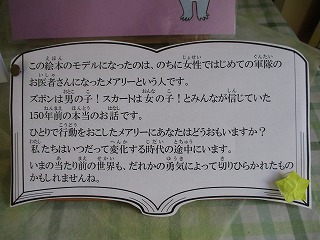 この絵本のモデルになったのは、のちに女性ではじめての軍隊の
お医者さんになったメアリーという人です。
ズボンは男の子！スカートは女の子！とみんなが信じていた
150年前の本当のお話です。
ひとりで行動をおこしたメアリーにあなたはどうおもいますか？
私たちはいつだって変化する時代の途中にいます。
いまの当たり前の世界も、だれかの勇気によって切りひらかれたもの
かもしれませんね。